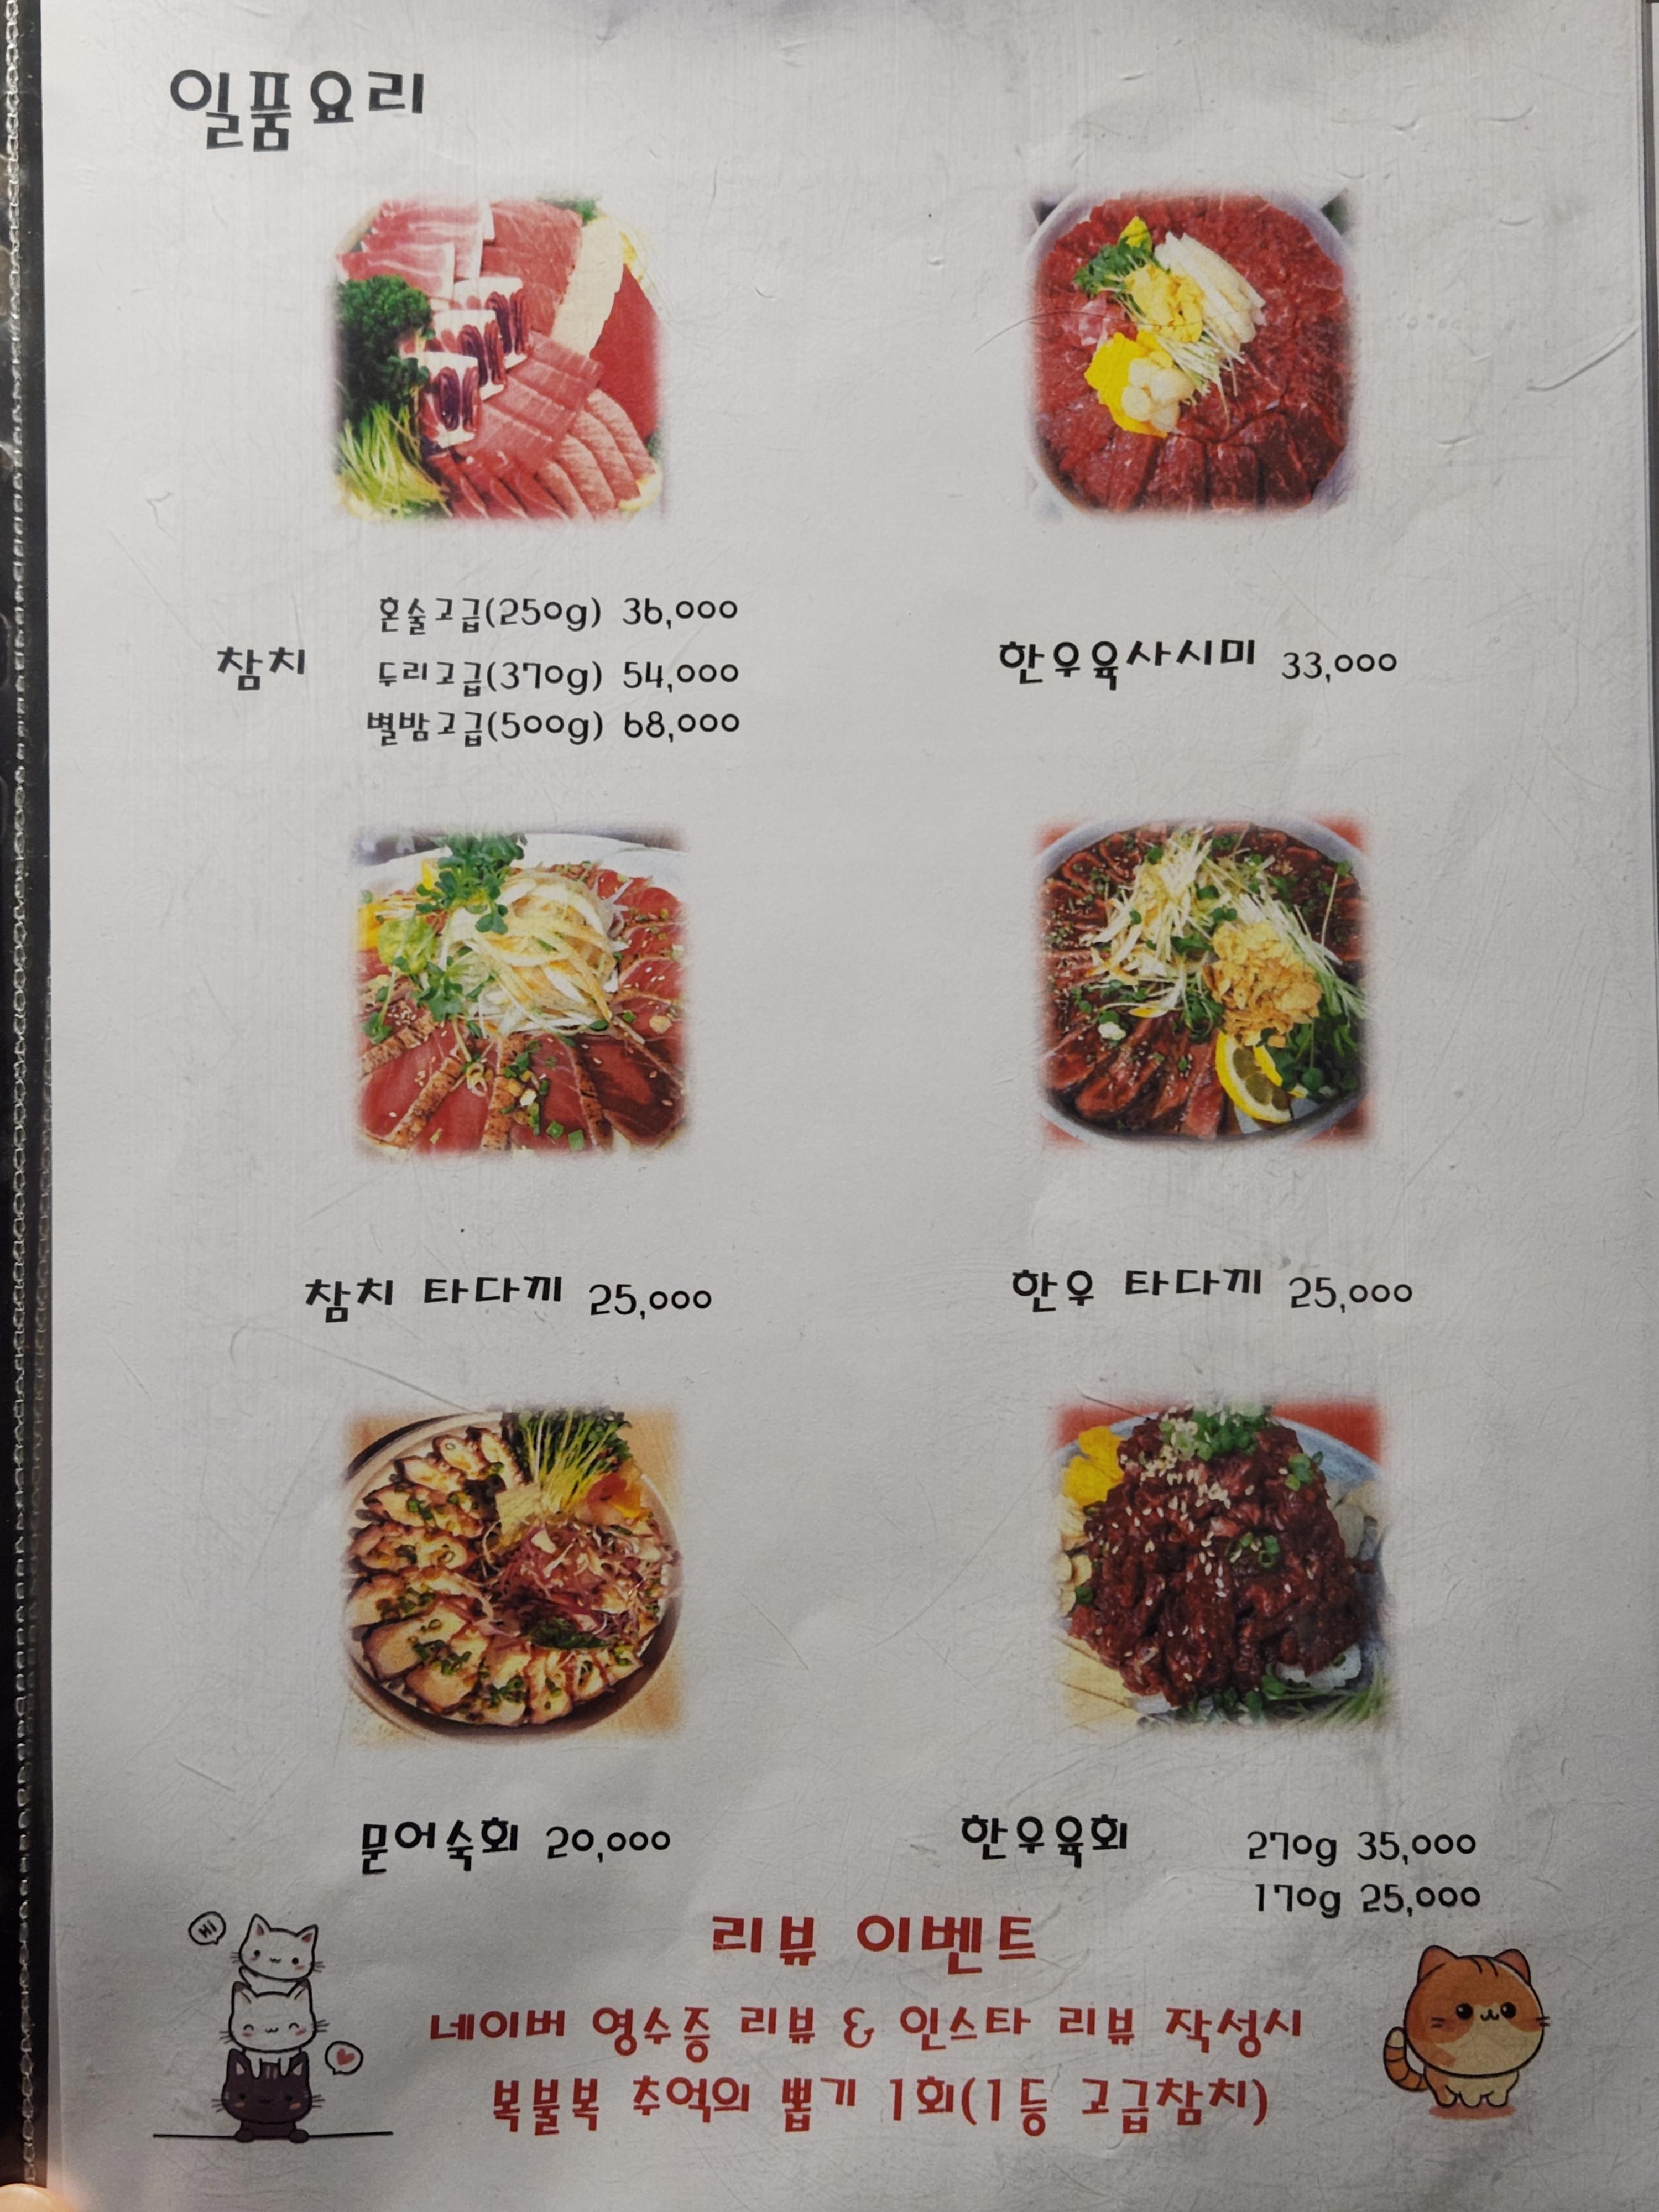 일품요리
참치
혼술고급(250g) 36,000
두리고급(370g) 54,000
별밤고급(500g) 68,000
한우육사시미 33,000
참치 타다끼 25,000
한우 타다끼 25,000
문어숙회 20,000
한우육회
270g 35,000
170g 25,000
리뷰 이벤트
HI
네이버 영수증 리뷰 & 인스타 리뷰 작성시
복불복 추억의 뽑기 1회(1등 고급참치)